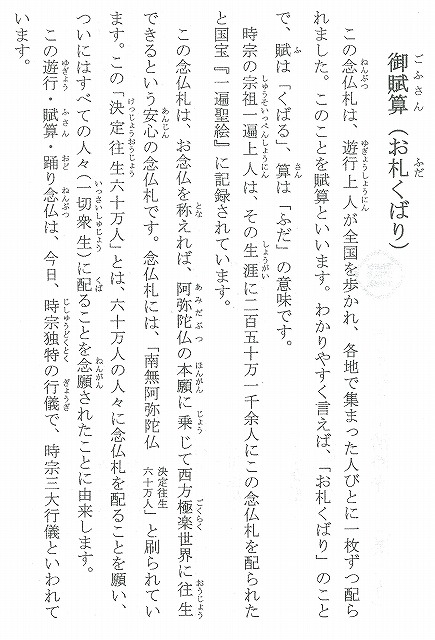 御賦算（お札くばり）
この念仏札は、遊行上人が全国を歩かれ、各地で集まった人びとに一枚ずつ配ら
れました。このことを賦算といいます。わかりやすく言えば、「お札くばり」のこと
で、賦は「くばる」、算は「ふだ」の意味です。
時宗の宗祖一遍上人は、その生涯に二百五十万一千余人にこの念仏札を配られた
と国宝『一遍聖絵』に記録されています。
この念仏札は、お念仏を称えれば、阿弥陀仏の本願に乗じて西方極楽世界に往生
できるという安心の念仏札です。念仏札には、「南無阿弥陀仏 決定往生六十万人」と刷られてい
ます。この「決定往生六十万人」とは、六十万人の人々に念仏札を配ることを願い、
ついにはすべての人々（一切衆生）に配ることを念願されたことに由来します。
この遊行・賦算・踊り念仏は、今日、時宗独特の行儀で、時宗三大行儀といわれて
います。